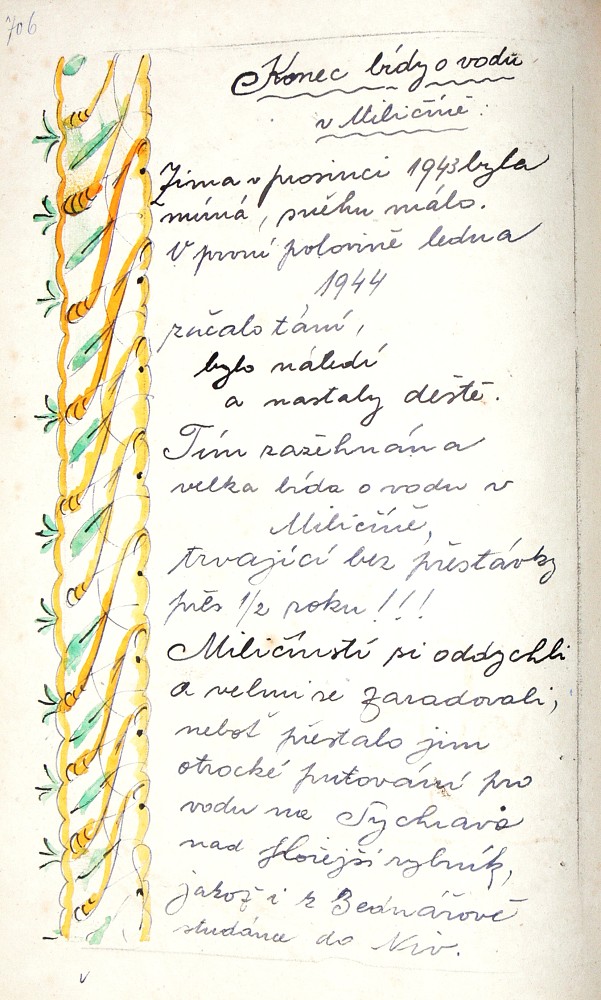 706
Konec bídy o vodu
v Miličíně.
Zima v prosinci 1943 byla
mírná, sněhu málo.
V první polovině ledna
1944
začalo tání,
bylo náledí
a nastaly deště.
Tím zažehnána
velká bída o vodu v
Miličíně,
trvající bez přestávky
přes 1/2 roku!!!
Miličínští si oddychli
a velmi se zaradovali,
neboť přestalo jim
otrocké putování pro
vodu na Sychravo
nad Hořejší rybník,
jakož i k Bednářově
studánce do Niv.
v